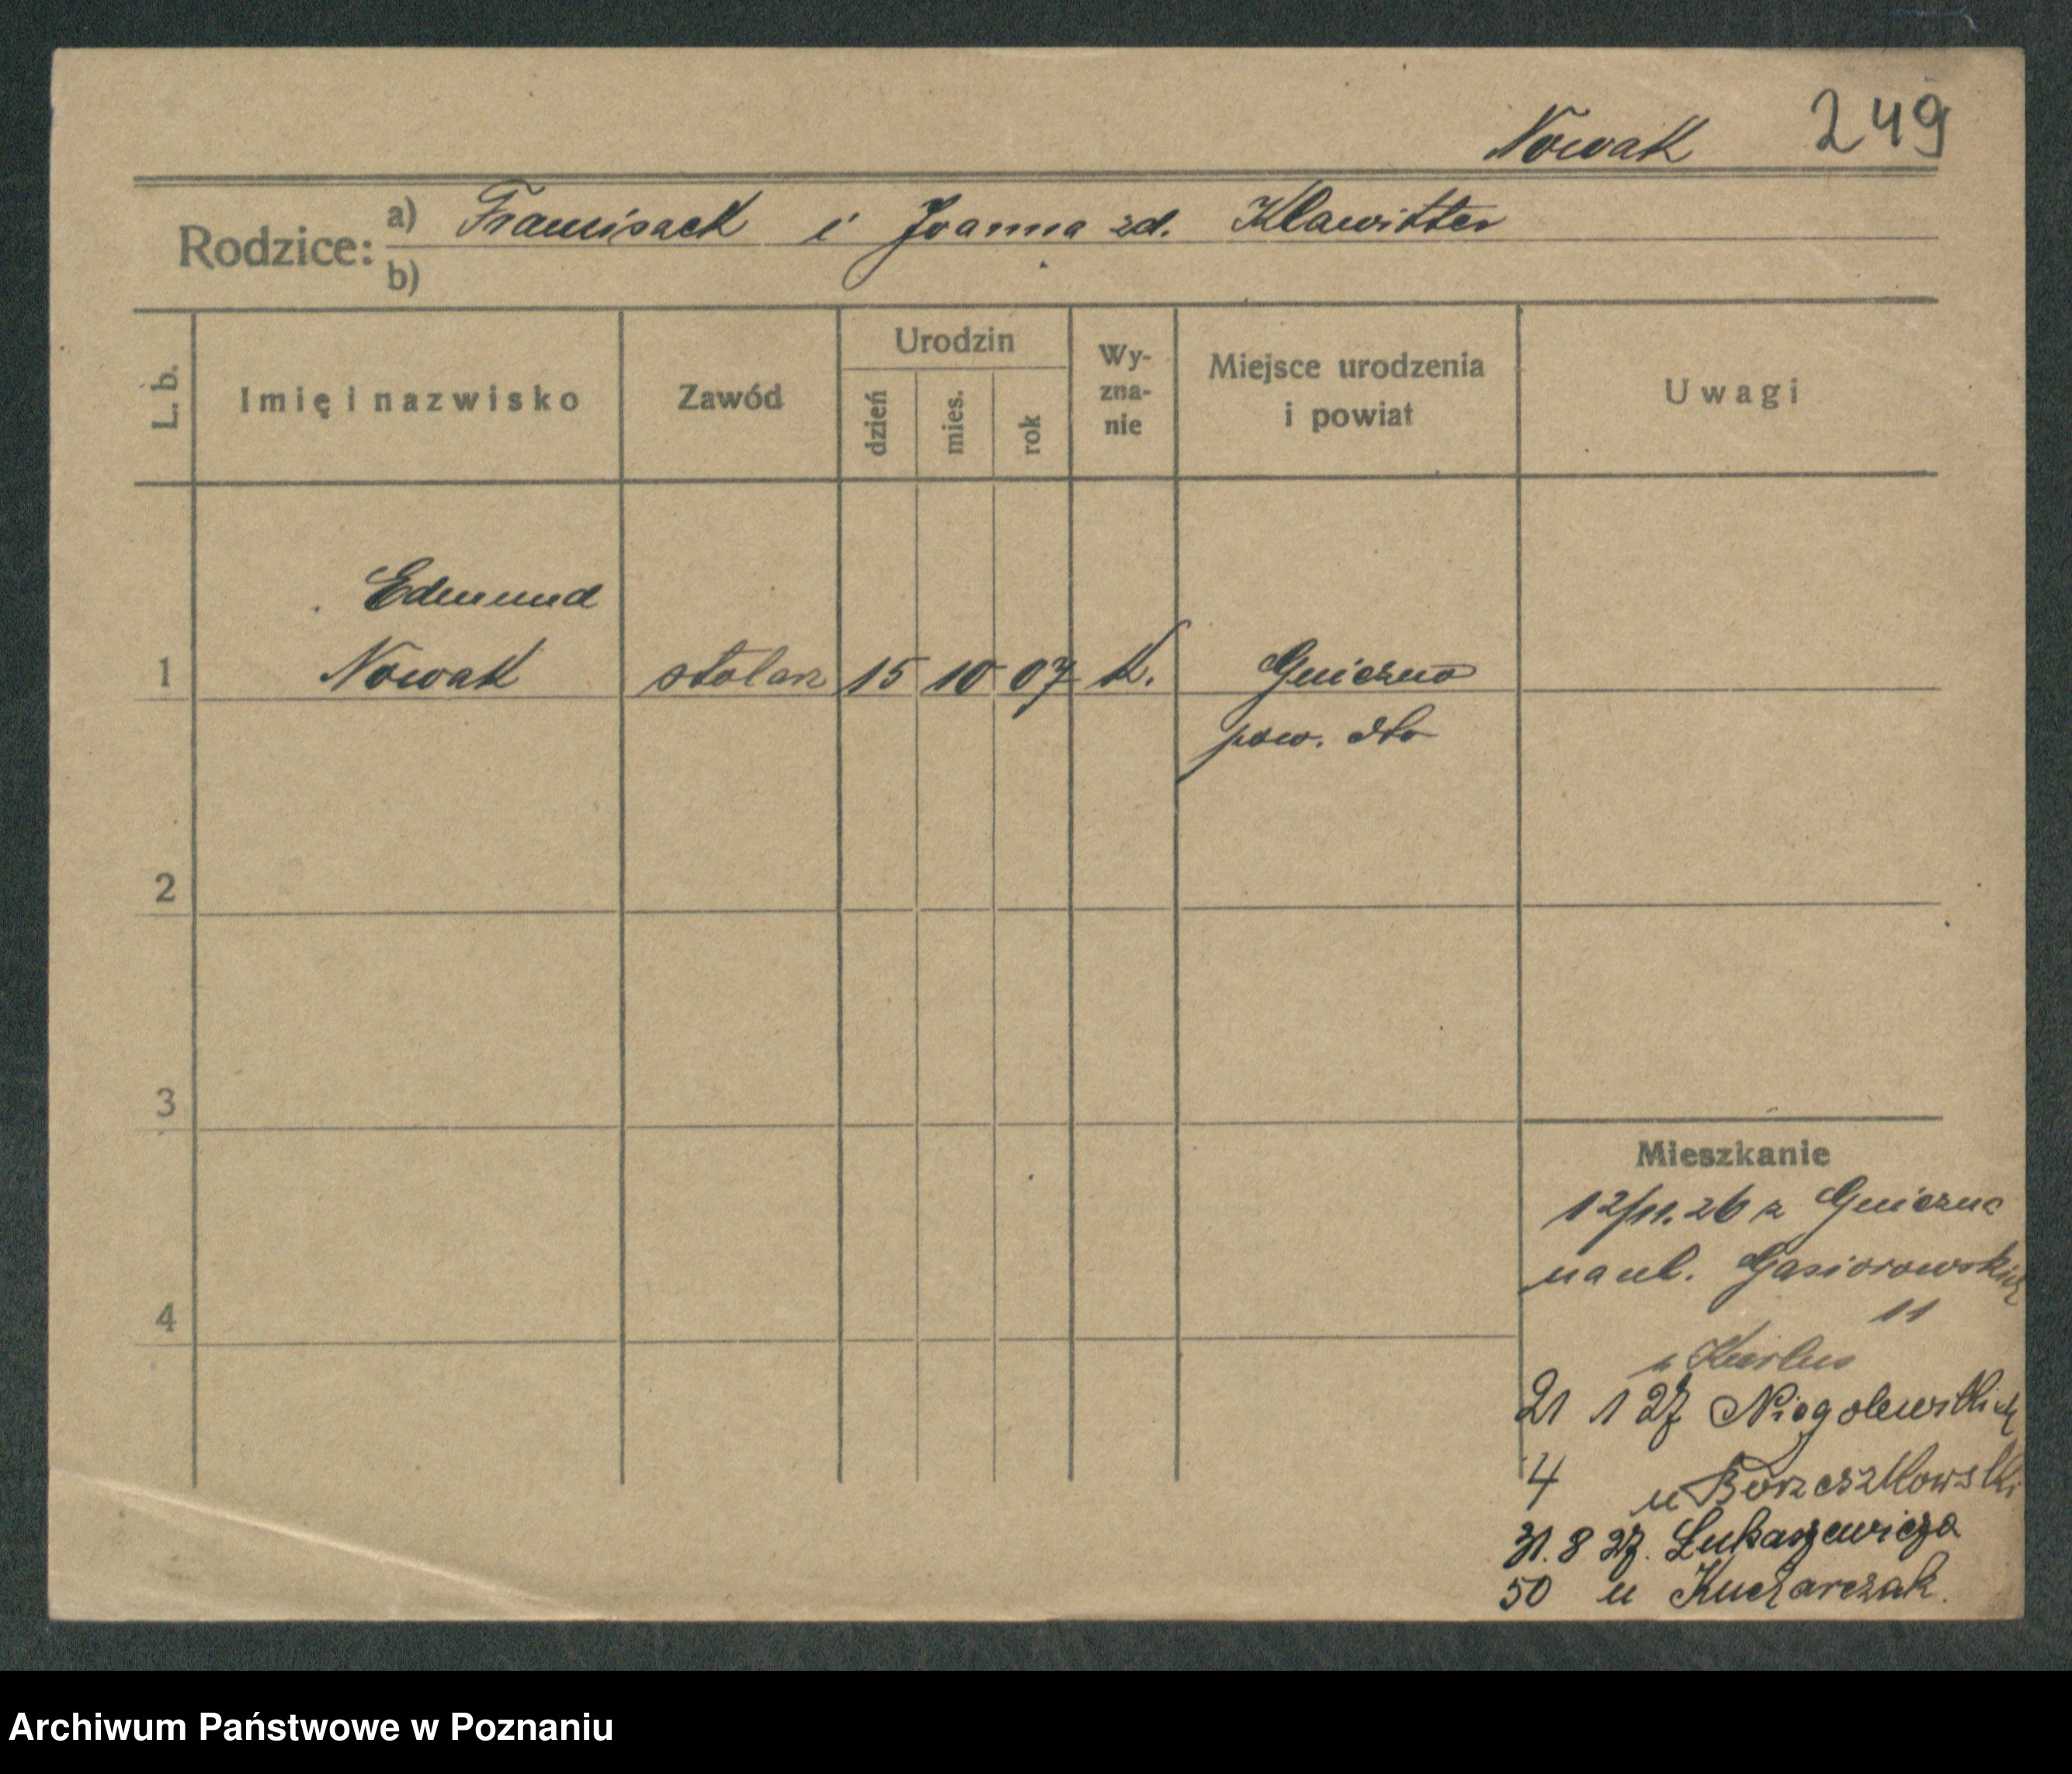 Nowak 249
Rodzice: a) Franciszek i Joanna zd. Klawitter
b)
L. b. Imię i nazwisko Zawód Urodzin dzień mies. rok Wy-zna-nie Miejsce urodzenia i powiat Uwagi
Edmund
1 Nowak stolarz 15 10 07 k. Gniezno
pow. dto
2
3
Mieszkanie
12/11. 26 z Gniezna
na ul. Gąsiorowskich
4
11
u
21 1 27 Niegolewskich
4 u Borzeszkowski
31. 8 27. Łukaszewicza
50 u Kucharczak.
Archiwum Państwowe w Poznaniu